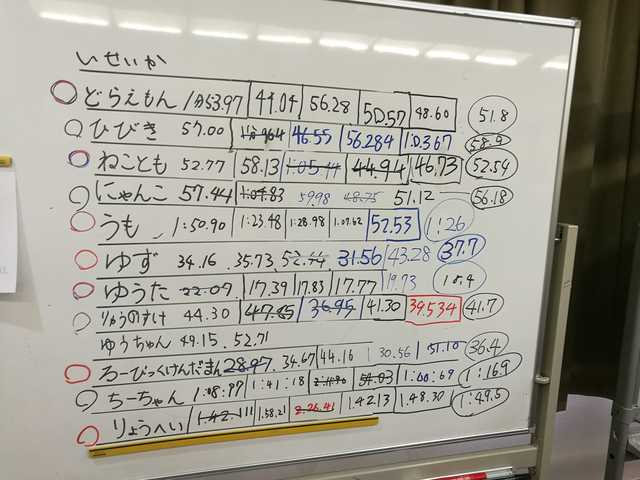 いせいか
どらえもん 1分53.97 44.04 56.28 50.57 48.60 51.8
ひびき 57.00 46.55 56.284 1:03.67 58.9
ねこども 52.77 58.13 1:05.44 44.94 46.73 52.54
にゃんこ 57.44 1:04.83 59.98 48.75 51.12 56.18
うも 1:50.90 1:23.48 1:28.98 1:07.62 52.53 1:26
ゆず 34.16 35.73 52.44 31.56 43.28 37.7
ゆうた 22.09 17.39 17.83 17.77 19.73 18.4
りゅうのすけ 44.30 47.65 36.95 41.30 39.534 41.7
ゆうちゃん 49.15 52.71
ろーびっくけんだまん 28.97 34.67 44.16 30.56 51.10 36.4
ちーちゃん 1:08.97 1:41:18 54.03 1:00:69 1:16.9
りょうへい 1.42.111 1.58.21 2.26.41 1.42.13 1.48.30 1:49.5